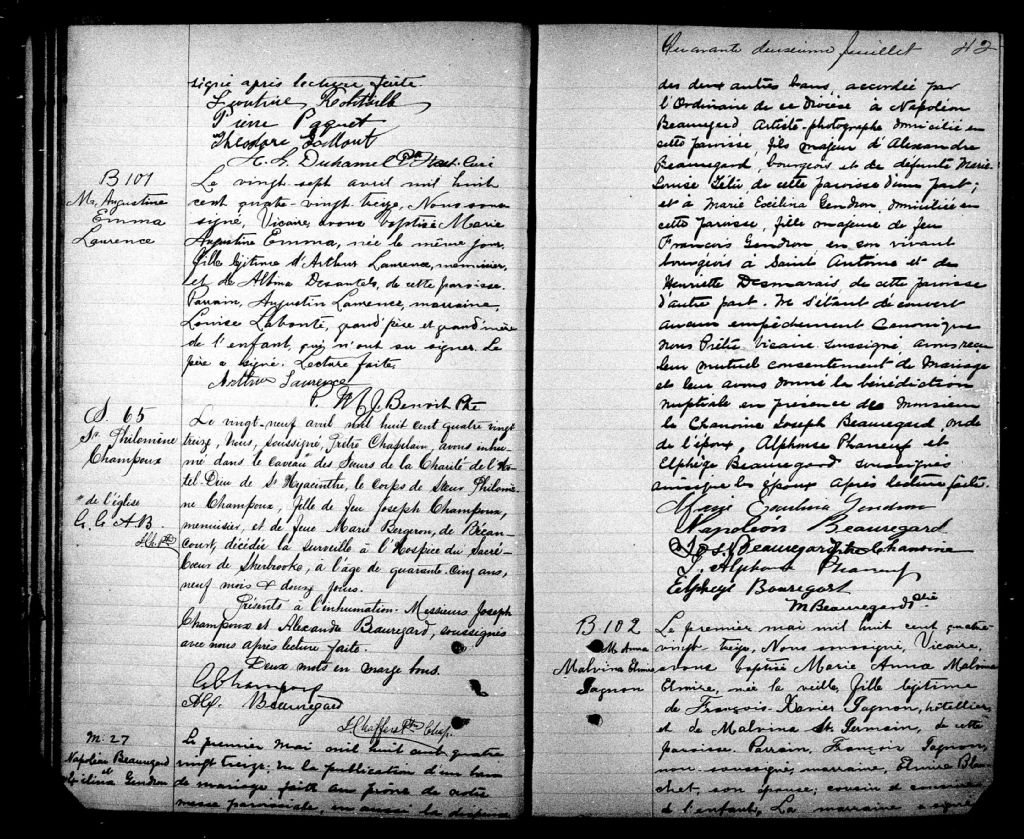 signé après lecture faite.
Pierre Paquet
Théodore
H. L. Duhamel Ptre Curé
B 101
M. Augustine
Emma
Laurence
Le vingt-sept avril mil huit
cent quatre-vingt treize, Nous sous-
signé, Vicaire, avons baptisé Marie
Augustine Emma, née le même jour,
fille légitime d'Arthur Laurence, menuisier,
et de Albina Desautels, de cette paroisse.
Parrain, Augustin Laurence, marraine,
Louise Labonté, grand'père et grand'mère
de l'enfant, qui n'ont su signer. Le
père a signé. Lecture faite.
Arthur Laurence
P. M. J. Benoit Ptre
S. 65
Sr Philomène
Champoux
Le vingt-neuf avril mil huit cent quatre vingt
treize, Nous, soussigné, Prêtre Chapelain, avons inhu-
mé dans le caveau des Sœurs de la Charité de l'Hô-
tel-Dieu de St Hyacinthe, le corps de Sœur Philomè-
ne Champoux, fille de feu Joseph Champoux,
menuisier, et de feue Marie Bergeron, de Bécan-
court, décédée la surveille à l'Hospice du Sacré-
Cœur de Sherbrooke, à l'âge de quarante-cinq ans,
neuf mois & douze jours.
" de l'église
G. G. A B.
Présents à l'inhumation. Messieurs Joseph
Champoux et Alexandre Beauregard, soussignés
avec nous après lecture faite.
Deux mots en marge bons.
Champoux
Alex. Beauregard
Ptre Chap.
M. 27
Napoléon Beauregard
et
Exélina Gendron
Le premier mai mil huit cent quatre
vingt treize; vu la publication d'un ban
de mariage faite au prône de notre
messe paroissiale, vu aussi la dispense
Quarante deuxième feuillet 42
des deux autres bans, accordée par
l'Ordinaire de ce Diocèse à Napoléon
Beauregard Artiste-photographe domicilié en
cette paroisse, fils majeur d'Alexandre
Beauregard, bourgeois et de défunte Marie
Louise de cette paroisse d'une part;
et à Marie Exélina Gendron, domiciliée en
cette paroisse, fille majeure de feu
François Gendron en son vivant
bourgeois à Sainte Antoine et de
Henriette Desmarais, de cette paroisse
d'autre part. Ne s'étant découvert
aucun empêchement Canonique
Nous Prêtre Vicaire soussigné avons reçu
leur mutuel consentement de Mariage
et leur avons donné la bénédiction
nuptiale en présence de Monsieur
le Chanoine Joseph Beauregard, oncle
de l'époux, Alphonse Phaneuf et
Elphège Beauregard soussignés
ainsi que les époux après lecture faite.
Marie Exulina Gendron
Napoléon Beauregard
Jos Beauregard Ptre Chanoine
J. Alphonse Phaneuf
Elphège Bauregart
M Beauregard Ptre
B 102
M. Anna
Malvina Elmire
Gagnon
Le premier mai mil huit cent quatre
vingt treize, Nous soussigné, Vicaire,
avons baptisé Marie Anna Malvina
Elmire, née la veille, fille légitime
de François-Xavier Gagnon, hôtellier
et de Malvina St. Germain, de cette
paroisse. Parrain, François Gagnon,
non-soussigné, marraine, Elmire Blan-
chet, son épouse; cousin et cousine
de l'enfant, La marraine a signé